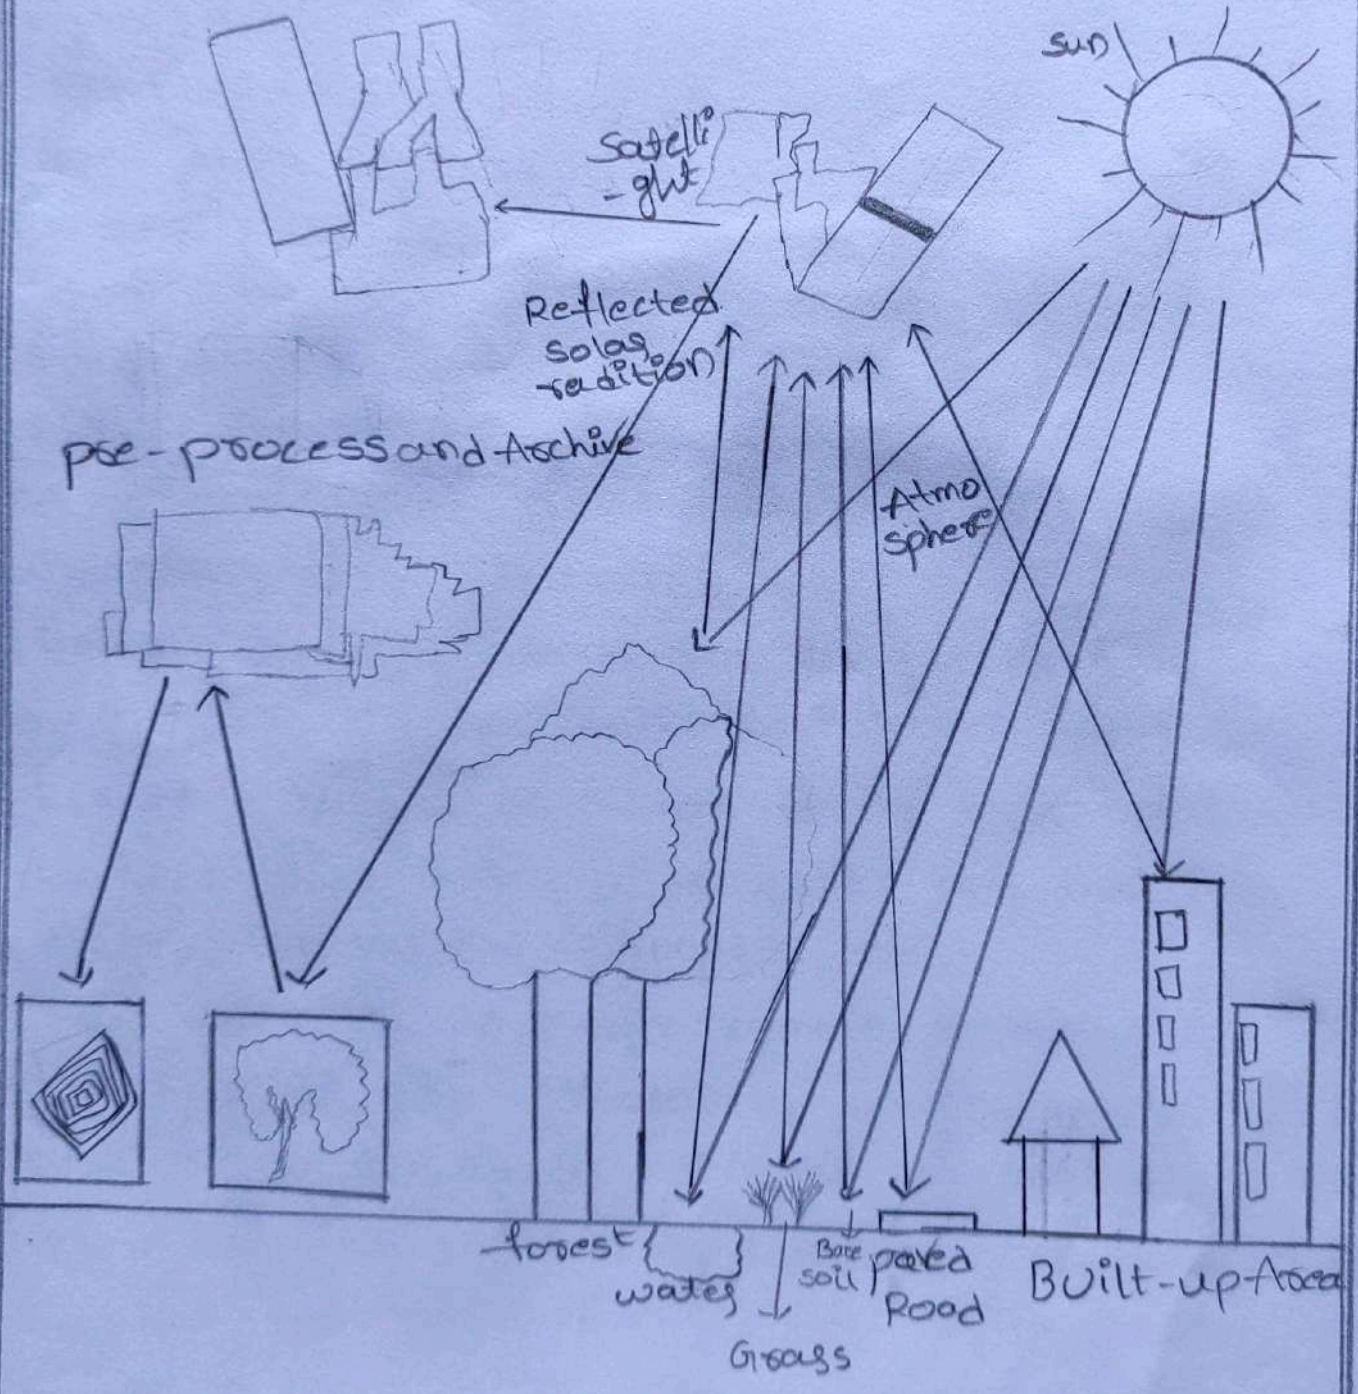 Sun
Satelli
-ght
Reflected
solar
radition
pre-process and Archive
Atmo
sphere
forest
water
Grass
Bare
soil
paved
Road
Built-up-Area